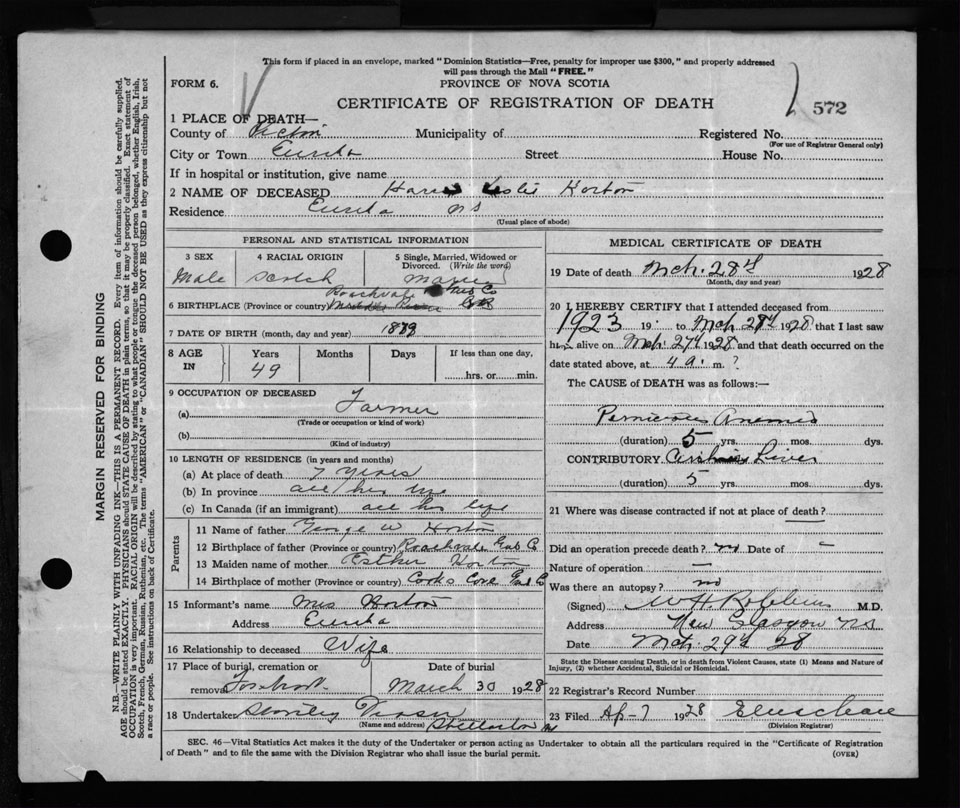 This form if placed in an envelope, marked "Dominion Statistics—Free, penalty for improper use $300," and properly addressed
will pass through the Mail "FREE."
FORM 6.
PROVINCE OF NOVA SCOTIA
CERTIFICATE OF REGISTRATION OF DEATH
572
1 PLACE OF DEATH—
County of Pictou Municipality of Registered No.
(For use of Registrar General only)
City or Town Eureka Street House No.
If in hospital or institution, give name
2 NAME OF DECEASED Leslie Horton
Residence Eureka NS
(Usual place of abode)
PERSONAL AND STATISTICAL INFORMATION
3 SEX 4 RACIAL ORIGIN 5 Single, Married, Widowed or Divorced. (Write the word)
Male Scotch
6 BIRTHPLACE (Province or country) Roachvale Co
7 DATE OF BIRTH (month, day and year) 1879
8 AGE IN Years Months Days If less than one day,
49 hrs. or min.
9 OCCUPATION OF DECEASED
(a) Farmer
(Trade or occupation or kind of work)
(b)
(Kind of industry)
10 LENGTH OF RESIDENCE (in years and months)
(a) At place of death 7 years
(b) In province all his life
(c) In Canada (if an immigrant) all his life
Parents
11 Name of father George W Horton
12 Birthplace of father (Province or country) Roachvale Co
13 Maiden name of mother Esther Horton
14 Birthplace of mother (Province or country) Cooks Cove Co
15 Informant's name Mrs Horton
Address Eureka
16 Relationship to deceased Wife
17 Place of burial, cremation or Date of burial
removal March 30 1928
18 Undertaker Stellarton NS
(Name and address)
MEDICAL CERTIFICATE OF DEATH
19 Date of death Mch. 28th 1928
(Month, day and year)
20 I HEREBY CERTIFY that I attended deceased from
1923 19 to Mch 28th 1928 that I last saw
him alive on Mch. 27th 1928 and that death occurred on the
date stated above, at 4 a. m. ?
The CAUSE of DEATH was as follows:—
Pernicious Anemia
(duration) 5 yrs. mos. dys.
CONTRIBUTORY Liver
(duration) 5 yrs. mos. dys.
21 Where was disease contracted if not at place of death?
Did an operation precede death? no Date of –
Nature of operation –
Was there an autopsy? no
(Signed) W H Robbins M.D.
Address New Glasgow NS
Date Mch 29th 28
State the Disease causing Death, or in death from Violent Causes, state (1) Means and Nature of
Injury, (2) whether Accidental, Suicidal or Homicidal.
22 Registrar's Record Number
23 Filed Ap. 7 1928
(Division Registrar)
SEC. 46—Vital Statistics Act makes it the duty of the Undertaker or person acting as Undertaker to obtain all the particulars required in the "Certificate of Registration
of Death" and to file the same with the Division Registrar who shall issue the burial permit. (OVER)
MARGIN RESERVED FOR BINDING
N.B.—WRITE PLAINLY WITH UNFADING INK—THIS IS A PERMANENT RECORD. Every item of information should be carefully supplied.
AGE should be stated EXACTLY. PHYSICIANS should STATE CAUSE OF DEATH in plain terms, so that it may be properly classified. Exact statement of
OCCUPATION is very important. RACIAL ORIGIN will be described by stating to what people or tongue the deceased person belonged, whether English, Irish,
Scotch, French, German, Russian, Ruthenian, etc. The terms "AMERICAN" or "CANADIAN" SHOULD NOT BE USED as they express citizenship but not
a race or people. See instructions on back of Certificate.